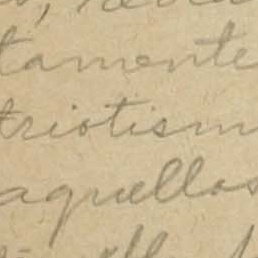 tamente
triotism
aquellos